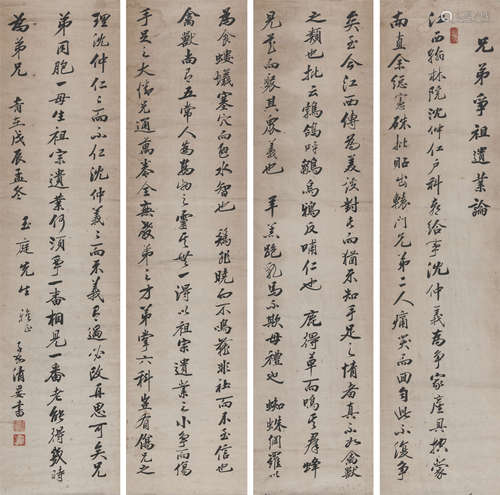 兄弟爭祖遺業論
江西翰林院沈仲仁戶科都給事沈仲義為爭家產具控蒙
南直余總憲硃批貶出轅門兄弟二人痛哭而回自此不復爭
矣至今江西傳為美談對古而猶未知手足之情者真不如禽獸
之類也批云鵓鴿呼雛烏鴉反哺仁也 鹿得草而鳴其群蜂
見花而聚其眾義也 羊羔跪乳馬不欺母禮也 蜘蛛網羅以
為食螻蟻塞穴而避水智也 雞非曉而不鳴燕非社而不至信也
禽獸尚有五常人為萬物之靈豈無一得以祖宗遺業之小爭而傷
手足之大倫兄通萬卷全無教弟之才弟掌六科豈有傷兄之
理沈仲仁仁而不仁沈仲義義而不義有過必改再思可矣兄
弟同胞一母生祖宗遺業何須爭一番相見一番老能得幾時
為弟兄 戊辰孟冬 玉庭先生雅正 清晏書